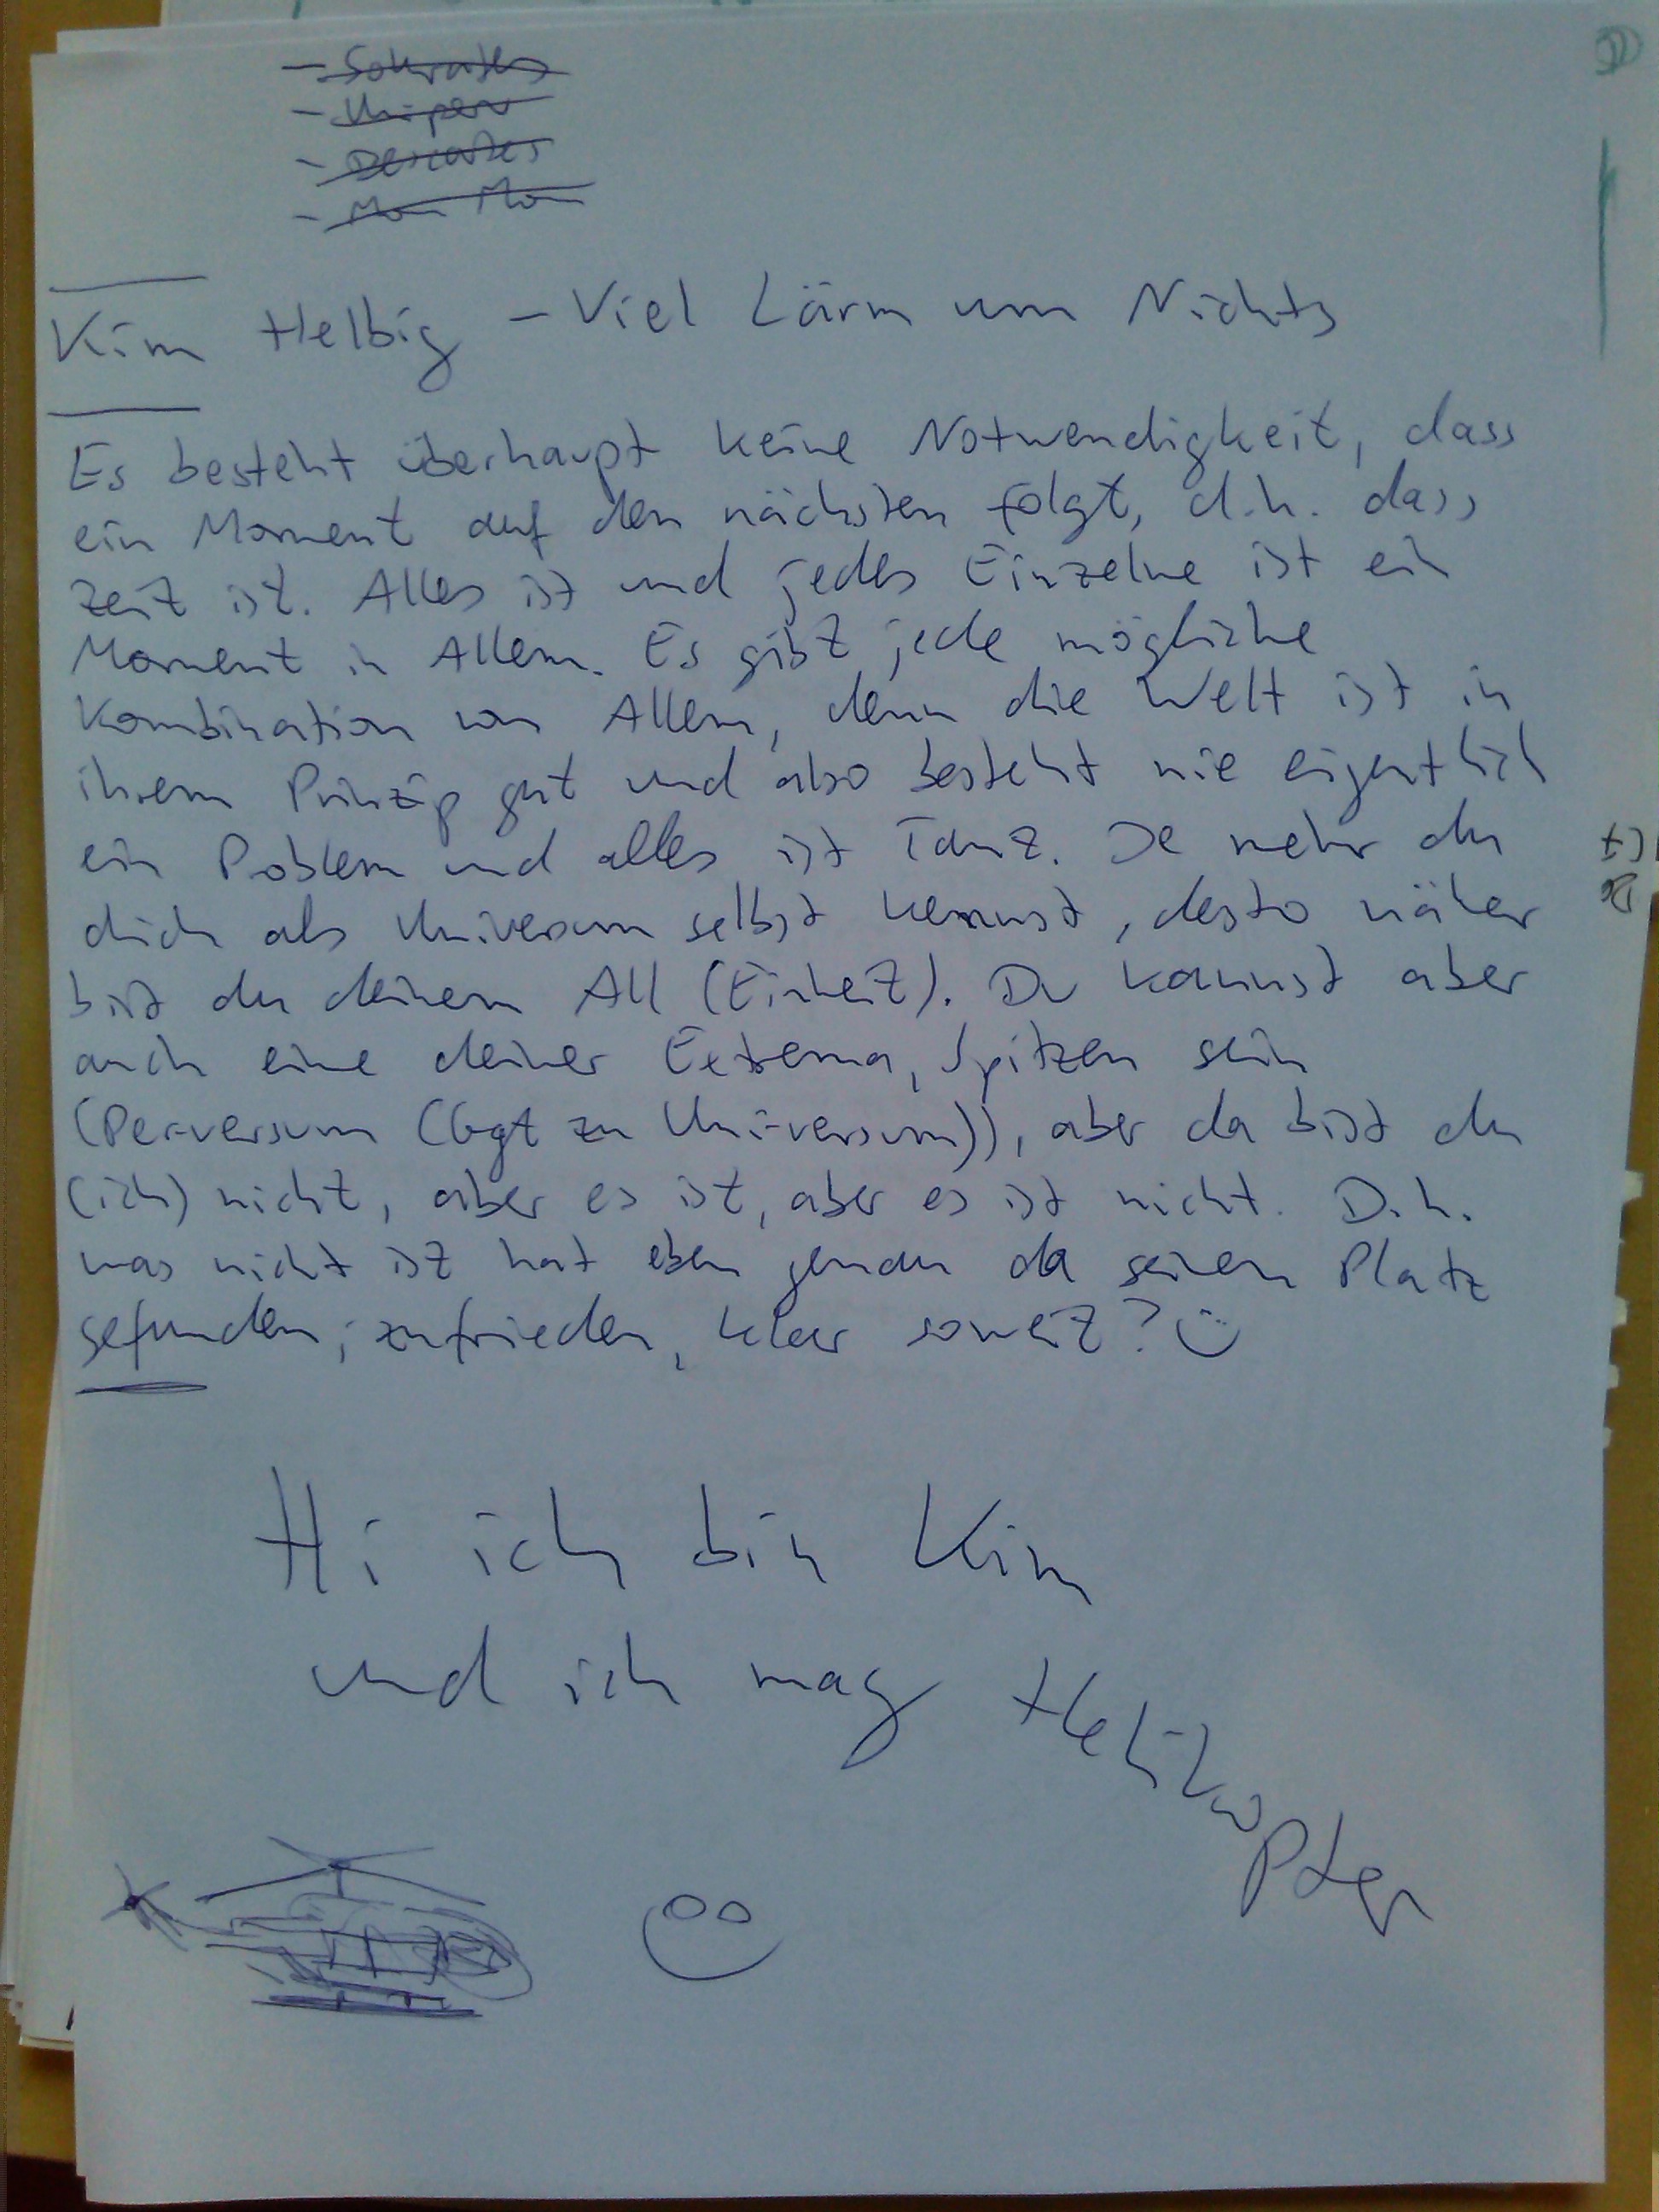 - Sokrates
- Uniper
- Descartes
- Mon Mon
Kim Helbig - Viel Lärm um Nichts
Es besteht überhaupt keine Notwendigkeit, dass
ein Moment auf den nächsten folgt, d.h. dass
Zeit ist. Alles ist und jedes Einzelne ist ein
Moment in Allem. Es gibt jede mögliche
Kombination von Allem, denn die Welt ist in
ihrem Prinzip gut und also besteht nie eigentlich
ein Problem und alles ist Tanz. Je mehr du
dich als Universum selbst kennst, desto näher
bist du deinem All (Einheit). Du kannst aber
auch eine deiner Extrema, Spitzen sein
(Per-versum (Ggt zu Uni-versum)), aber da bist du
(ich) nicht, aber es ist, aber es ist nicht. D.h.
was nicht ist hat eben genau da seinen Platz
gefunden; zufrieden, klar soweit?
Hi ich bin Kim
und ich mag Helikopter